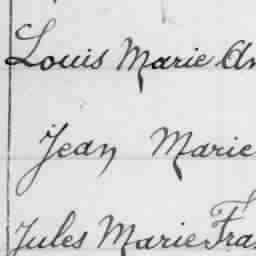 Louis Marie An
Jean Marie
Jules Marie Fra